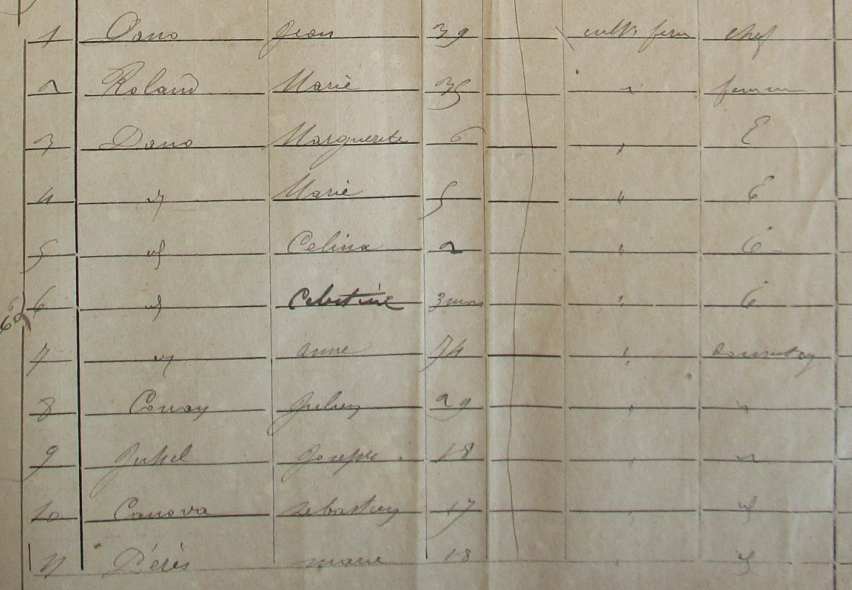 1 Dano Jean 39 cult. ferm chef
2 Roland Marie 35 " femme
3 Dano Marguerite 6 " E
4 " Marie 5 " E
5 " Celina 2 " E
6 " Celestine 3 mois " E
7 " anne 74 "
8 Conan Julien 29 " "
9 Juhel Joseph 18 " "
10 Canova Sebastien 17 " "
11 Pérès marie 18 " "